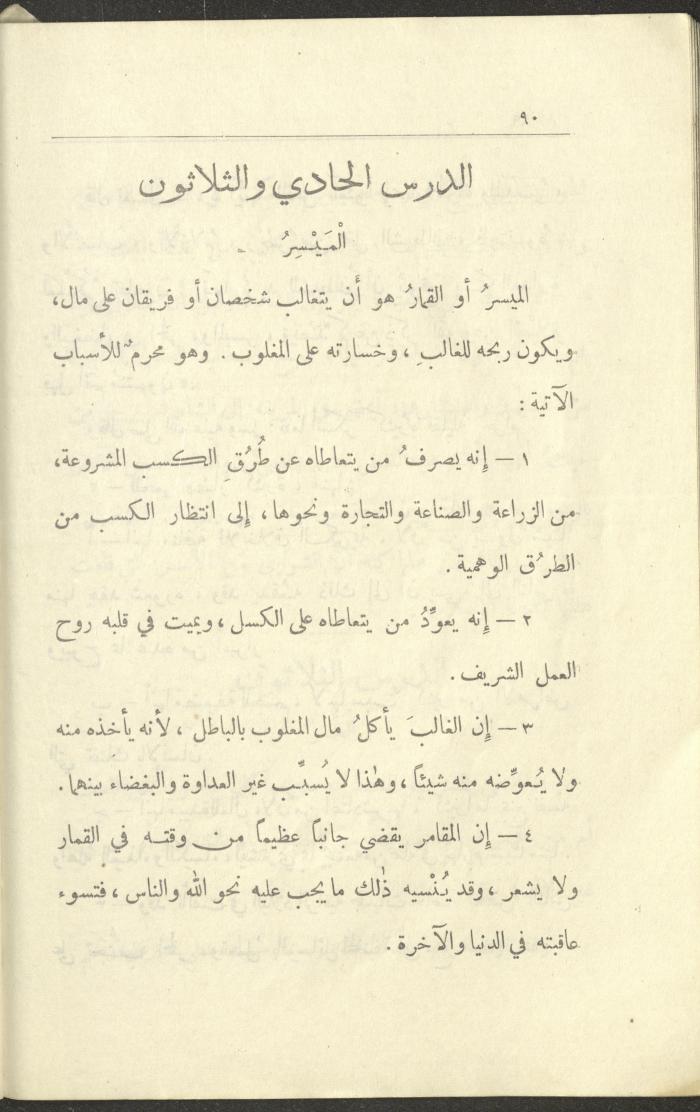 ٩٠
الدرس الحادي والثلاثون
الْمَيْسِرُ
الميسرُ أو القمارُ هو أَن يتغالب شخصان أو فريقان على مال،
ويكون ربحه للغالبِ، وخسارته على المغلوب. وهو محرم للأسباب
الآتية:
١ — إِنه يصرفُ من يتعاطاه عن طُرُقِ الكسب المشروعة،
من الزراعة والصناعة والتجارة ونحوها، إِلى انتظار الكسب من
الطرُق الوهمية.
٢ — إِنه يعوِّدُ من يتعاطاه على الكسل، ويميت في قلبه روح
العمل الشريف.
٣ — إِن الغالبَ يأكلُ مال المغلوب بالباطل، لأنه يأخذه منه
ولا يُعوِّضه منه شيئاً، وهٰذا لا يُسبِّب غير العداوة والبغضاء بينهما.
٤ — إِن المقامر يقضي جانباً عظيماً من وقته في القمار
ولا يشعر، وقد يُنْسيه ذٰلك ما يجب عليه نحو الله والناس، فتسوء
عاقبته في الدنيا والآخرة.